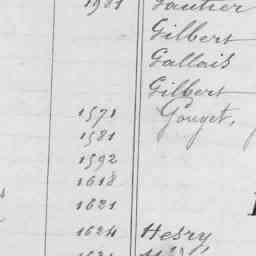 1581 Gautier
Gilbert
Gallais
Gilbert
1571 Gouget,
1581
1592
1618
1621
1624 Hesry,